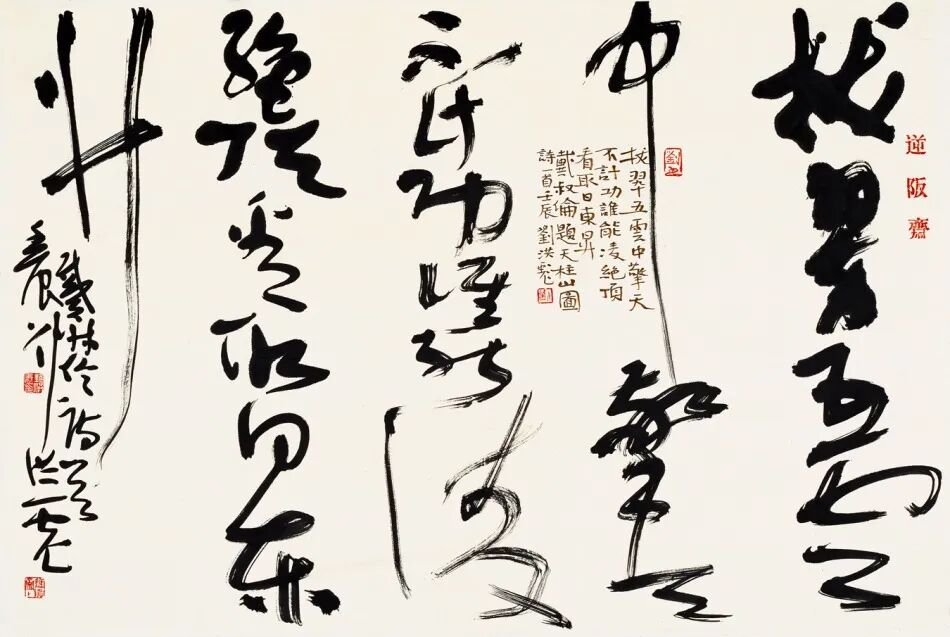 逆阪齋
拔翠五雲
中擎天
不計功誰能凌
絕頂看取日東
昇
戴叔倫詩
壬辰劉洪彪
拔翠五雲中擎天
不計功誰能凌絕頂
看取日東昇
戴叔倫題天柱山圖
詩一首壬辰劉洪彪